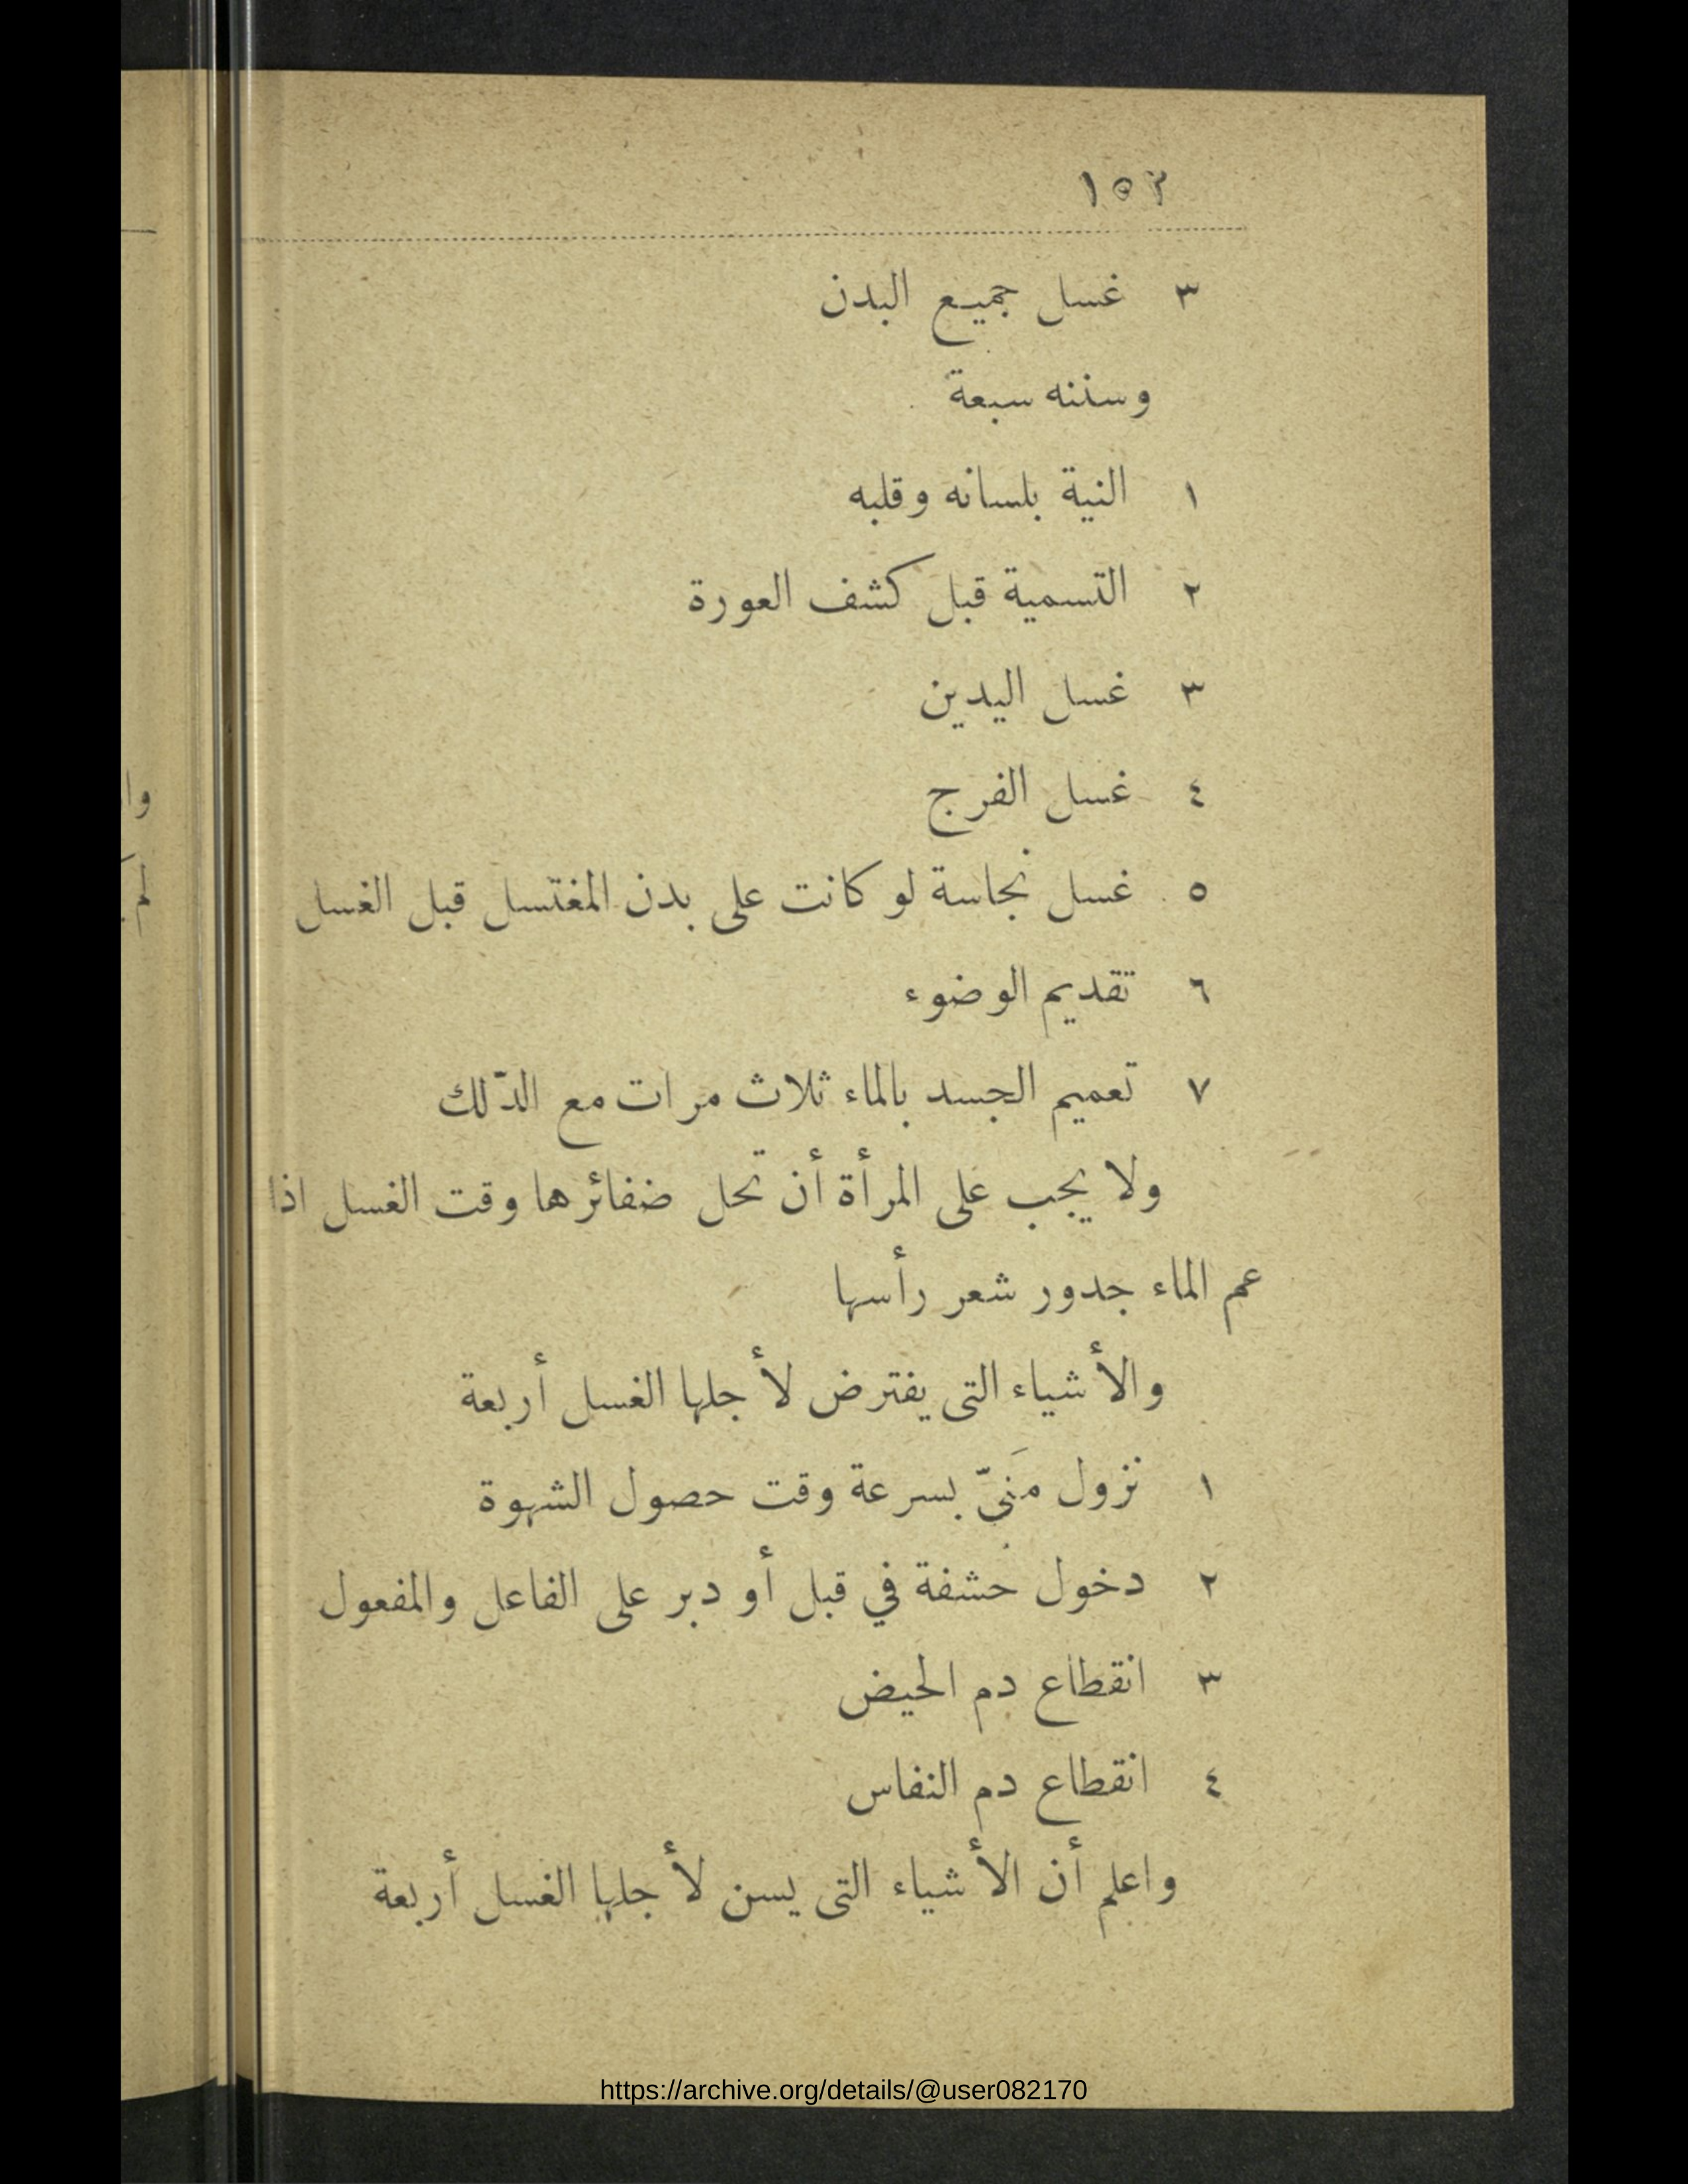 ١٥٣
٣ غسل جميع البدن
وسننه سبعة
١ النية بلسانه وقلبه
٢ التسمية قبل كشف العورة
٣ غسل اليدين
٤ غسل الفرج
٥ غسل نجاسة لو كانت على بدن المغتسل قبل الغسل
٦ تقديم الوضوء
٧ تعميم الجسد بالماء ثلاث مرات مع الدّلك
ولا يجب على المرأة أن تحل ضفائرها وقت الغسل اذا
عم الماء جدور شعر رأسها
والأشياء التى يفترض لأجلها الغسل أربعة
١ نزول مَنىّ بسرعة وقت حصول الشهوة
٢ دخول حشفة في قبل أو دبر على الفاعل والمفعول
٣ انقطاع دم الحيض
٤ انقطاع دم النفاس
واعلم أن الأشياء التى يسن لأجلها الغسل أربعة
https://archive.org/details/@user082170